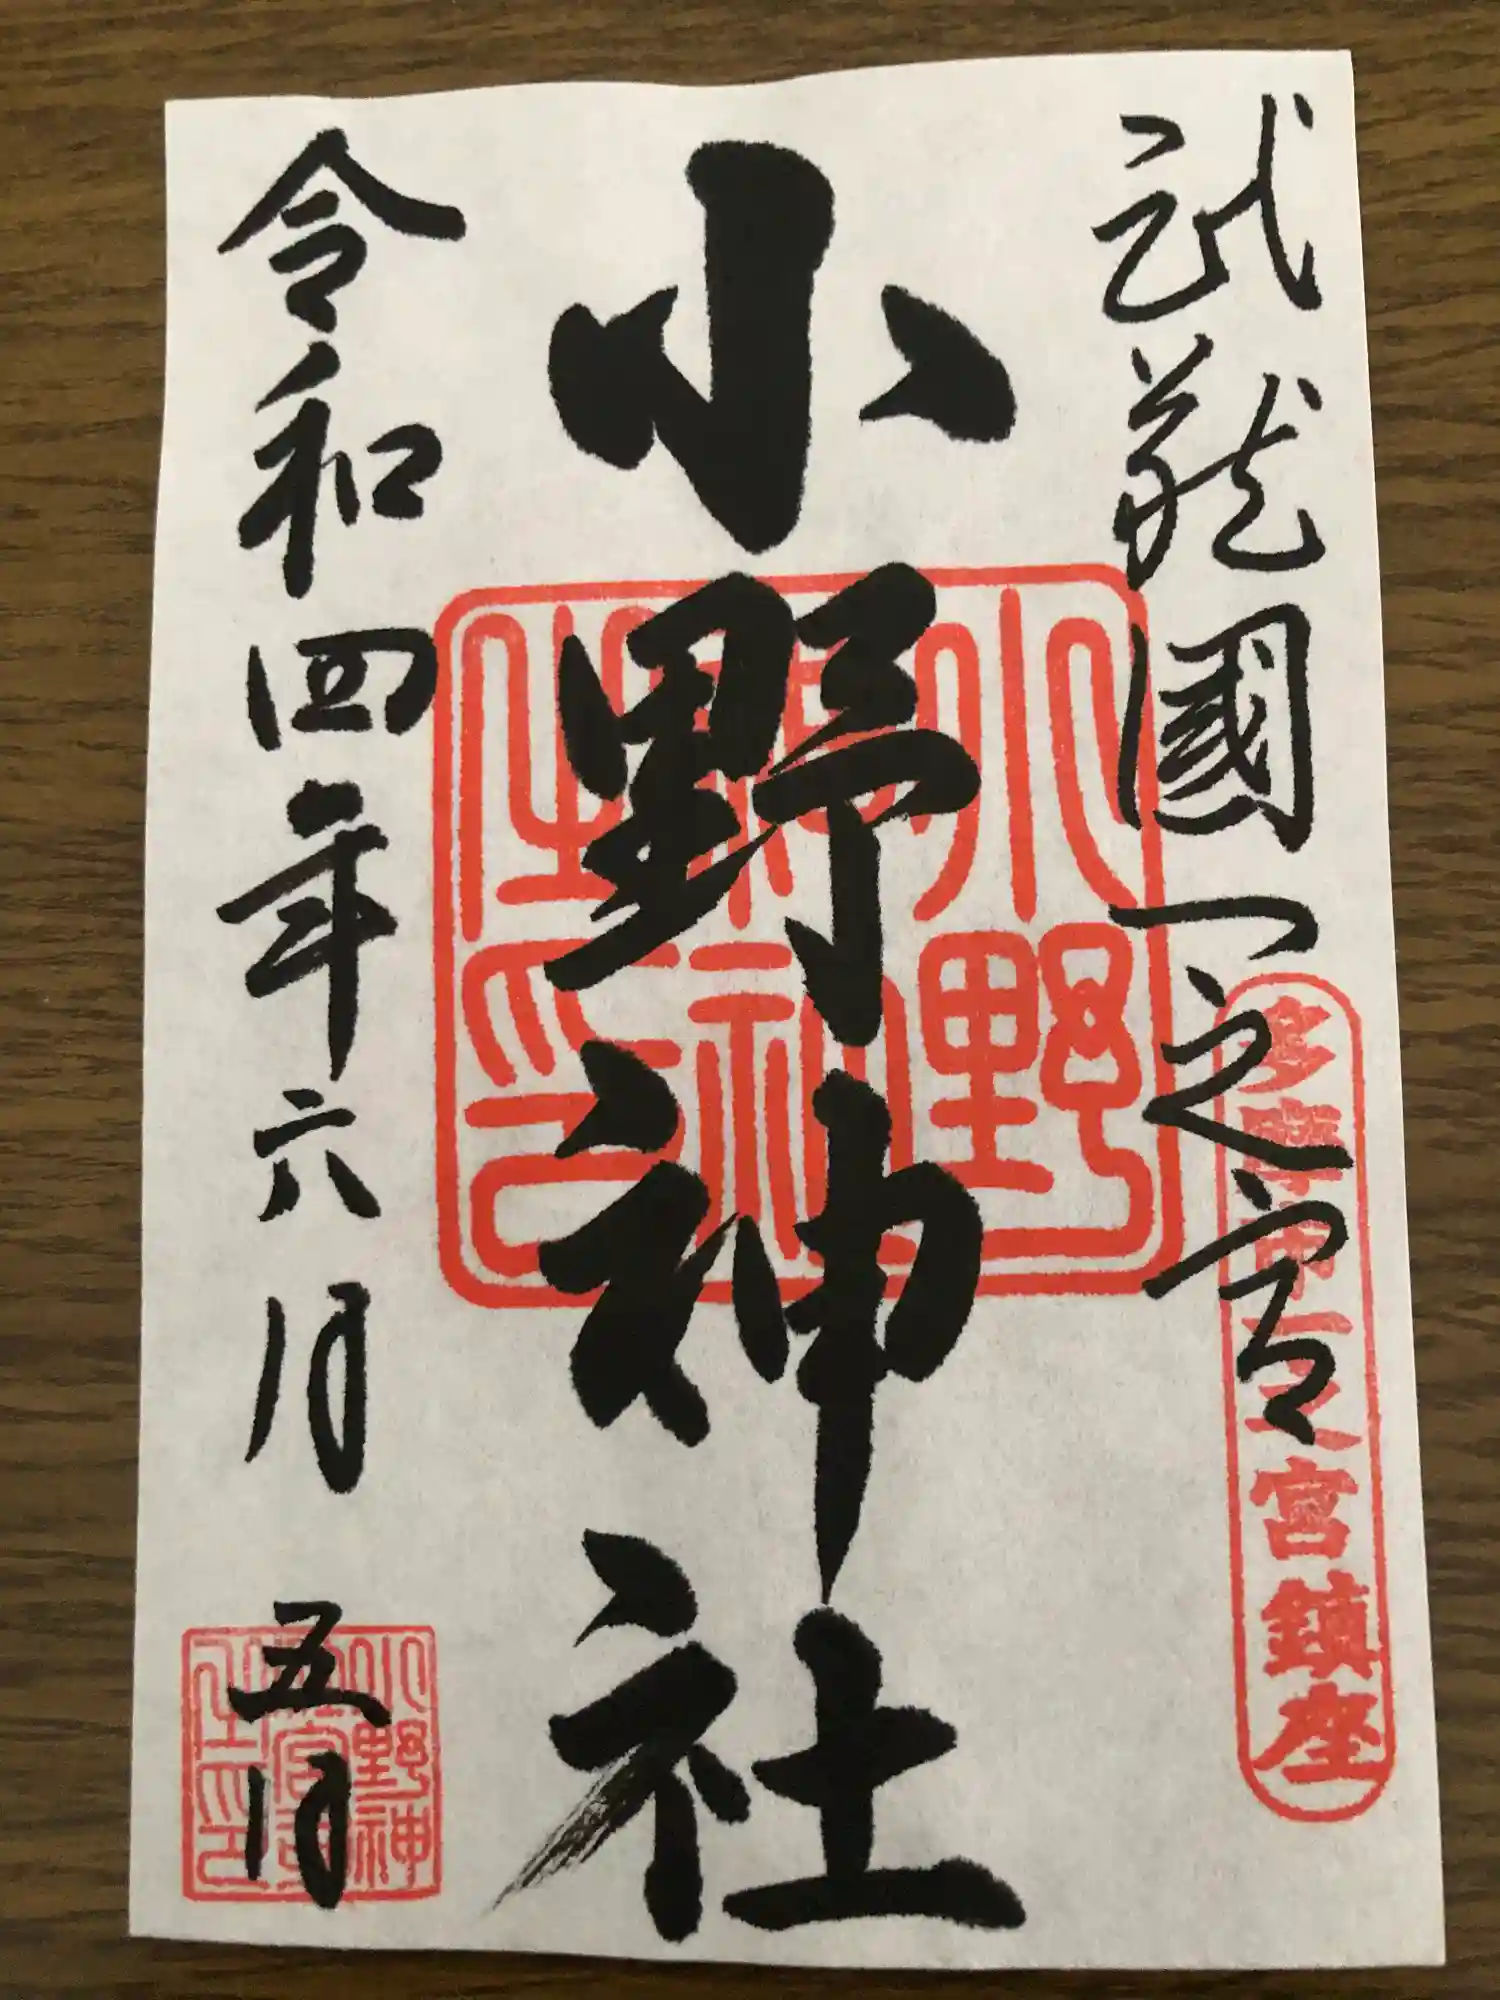 武蔵國一之宮
多摩市一之宮鎮座
小野神社
小野神社之印
令和四年六月五日
小野神社宮司之印